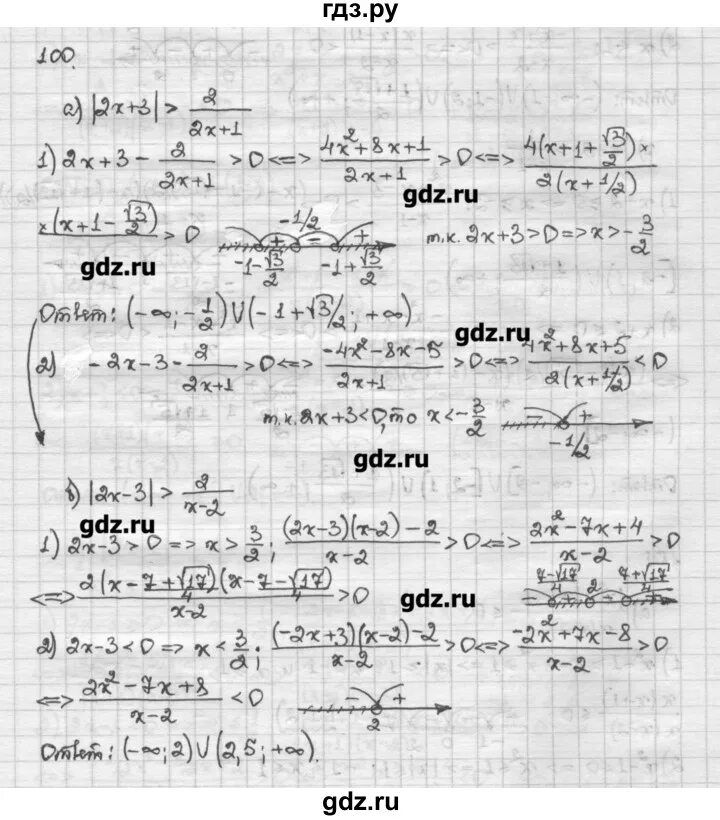 гдз.ру
100.
а) |2x+3| > 2/(2x+1)
1) 2x+3 - 2/(2x+1) > 0 <=> (4x²+8x+1)/(2x+1) > 0 <=> 4(x+1+√3/2)×/2(x+1/2)
×(x+1-√3/2) > 0
-1/2
+ - +
-1-√3/2 -1+√3/2
т.к. 2x+3>0 => x>-3/2
gdz.ru
gdz.ru
Ответ: (-∞; -1/2) ∪ (-1+√3/2; +∞)
gdz.ru
2) -2x-3-2/(2x+1) > 0 <=> (-4x²-8x-5)/(2x+1) > 0 <=> (4x²+8x+5)/2(x+1/2) < 0
т.к. 2x+3<0, то x<-3/2
- +
-1/2
gdz.ru
б) |2x-3| > 2/(x-2)
gdz.ru
1) 2x-3>0 => x>3/2; ((2x-3)(x-2)-2)/(x-2) > 0 <=> (2x²-7x+4)/(x-2) > 0
<=> 2(x-(7+√17)/4)(x-(7-√17)/4)/(x-2) > 0
(7-√17)/4 2 (7+√17)/4
gdz.ru
2) 2x-3<0 => x<3/2; ((-2x+3)(x-2)-2)/(x-2) > 0 <=> (-2x²+7x-8)/(x-2) > 0
<=> (2x²-7x+8)/(x-2) < 0
- +
2
Ответ: (-∞; 2) ∪ (2,5; +∞).
gdz.ru